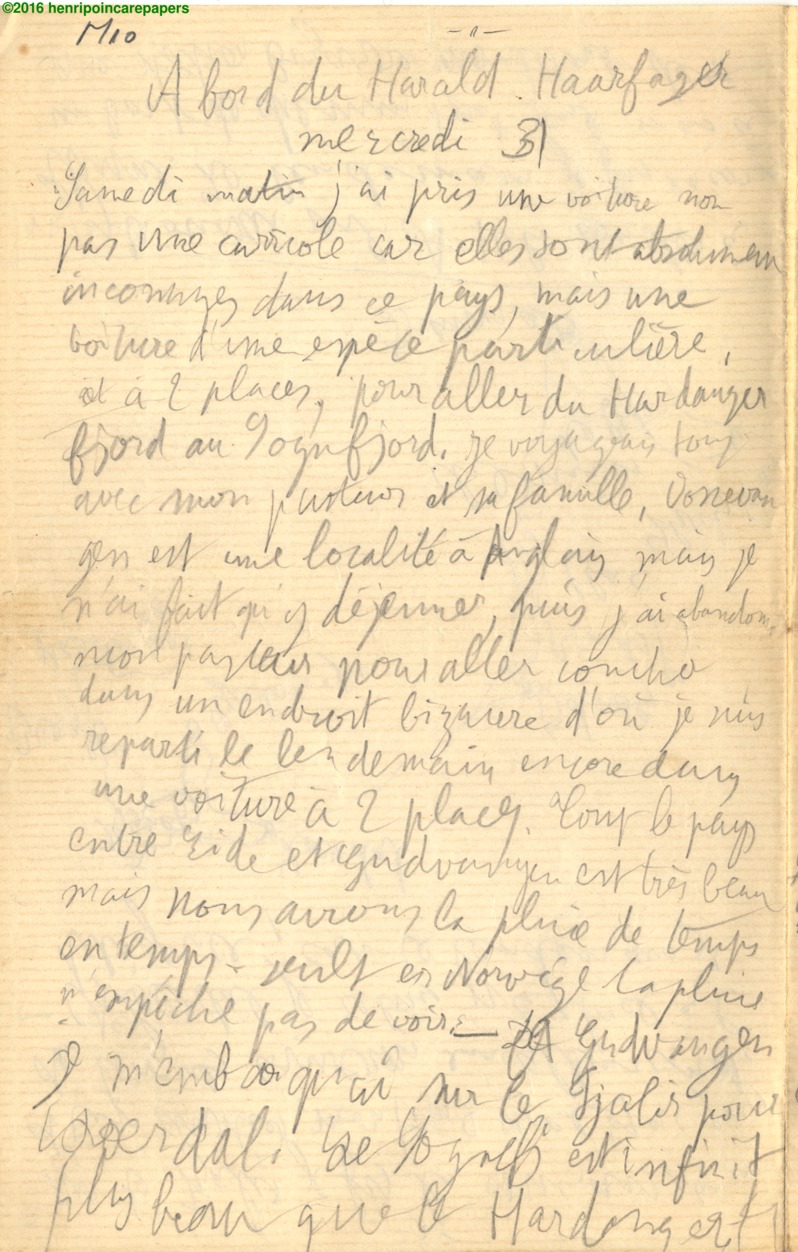 ©2016 henripoincarepapers
A bord du Harald Haarfager
mercredi 31
Samedi matin j'ai pris une voiture non
pas une carricole car elles sont absolumen
inconnues dans ce pays, mais une
voiture d'une espèce particulière,
et à 2 places, pour aller du Hardanger
fjord au Sognfjord. je voyageais touj
avec mon pasteur et sa famille, Vossevan
gen est une localité à Anglais mais je
n'ai fait qu'y déjeuner, puis j'ai abandon
mon pasteur pour aller couche
dans un endroit bizarre d'où je suis
reparti le lendemain encore dans
une voiture à 2 places. Tout le pays
entre Eide et Gudvangen est très beau
mais nous avons la pluie de temps
en temps - seult en Norvège la pluie
n'empêche pas de voir. — A Gudvangen
Je m'embarquai sur le Fjalir pour
Laerdal. Le Sognefj est infinit
plus beau que le Hardanger